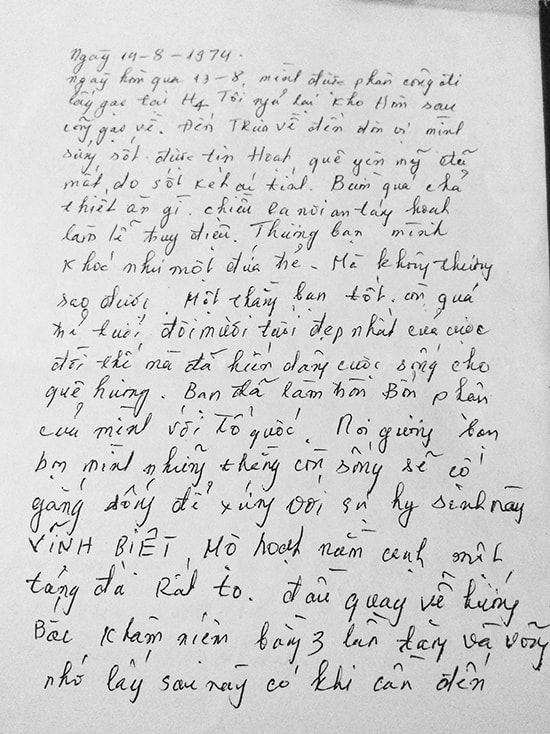 Ngày 14-8-1974.
ngày hôm qua 13-8, mình được phân công đi
lấy gạo tại H4 Tôi ngủ lại kho Hòn sau
cõng gạo về. Đến Trưa về đến đơn vị mình
sửng sốt được tin Hoạt, quê yên mỹ đã
mất do sốt rét ác tính. Buồn quá chả
thiết ăn gì. chiều ra nơi an táng hoạt
làm lễ truy điệu. Thương bạn mình
khóc như một đứa trẻ. Mà không thương
sao được. Một thằng bạn tốt. còn quá
trẻ tuổi đôi mươi tuổi đẹp nhất của cuộc
đời thế mà đã hiến dâng cuộc sống cho
quê hương. Bạn đã làm tròn Bổn phận
của mình với Tổ quốc. Noi gương bạn
bọn mình những thằng còn sống sẽ cố
gắng sống để xứng với sự hy sinh này
VĨNH BIỆT, Mộ hoạt nằm cạnh một
tảng đá Rất to. đầu quay về hướng
Bắc khâm niệm bằng 3 lần tăng và võng
nhớ lấy sau này có khi cần đến